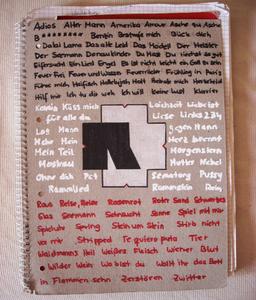 Adios Alter Mann Amerika Amour Asche zu Asche
B******** Benzin Bestrafe mich Bück dich
Dalai Lama Das alte Leid Das Modell Der Meister
Der Seemann Donaukinder Du Hast Du riechst so gut
Eifersucht Ein Lied Engel Es ist nicht leicht ein Gott zu sein
Feuer Frei Feuer und Wasser Feuerräder Frühling in Paris
Führe mich Haifisch Halleluja Heirate mich Herzeleid
Hilf mir Ich tu dir weh Ich will Keine Lust Klavier
Kokain Küss mich
für alle da
Los Mann
Mehr Mein
Mein Teil
Moskau
Ohne dich Pet
Rammlied
Laichzeit Liebe ist
Liese Links 234
gegen Mann
Herz brennt
Morgenstern
Mutter Nebel
Sematary Pussy
Rammstein Rein
Raus Reise, Reise Rosenrot Roter Sand Schwarzes
Glas Seemann Sehnsucht Sonne Spiel mit mir
Spieluhr Spring Stein um Stein Stirb nicht
vor mir Stripped Te quiero puta Tier
Waidmanns Heil Weißes Fleisch Wiener Blut
Wilder Wein Wo bist du Wollt ihr das Bett
in Flammen sehn Zerstören Zwitter